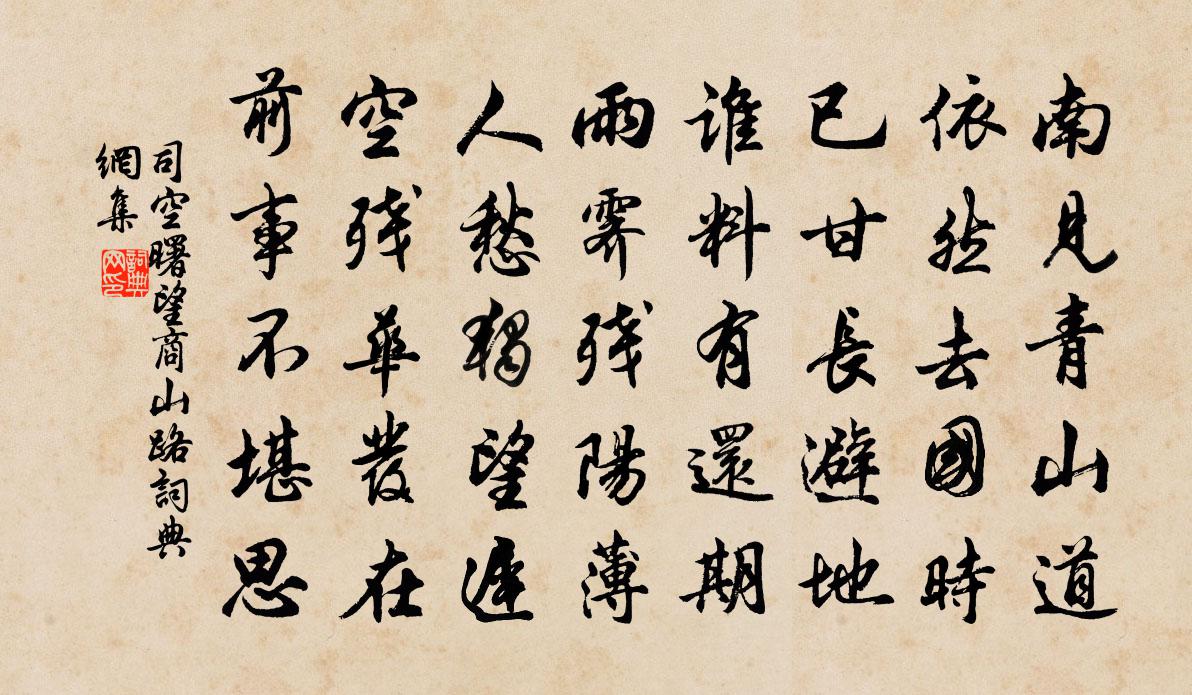 南見青山道
依然去國時
已甘長避地
誰料有還期
雨霽残陽薄
人愁獨望遲
空残華發在
前事不堪思
司空曙望商山路詞典
網集
詞典
网印